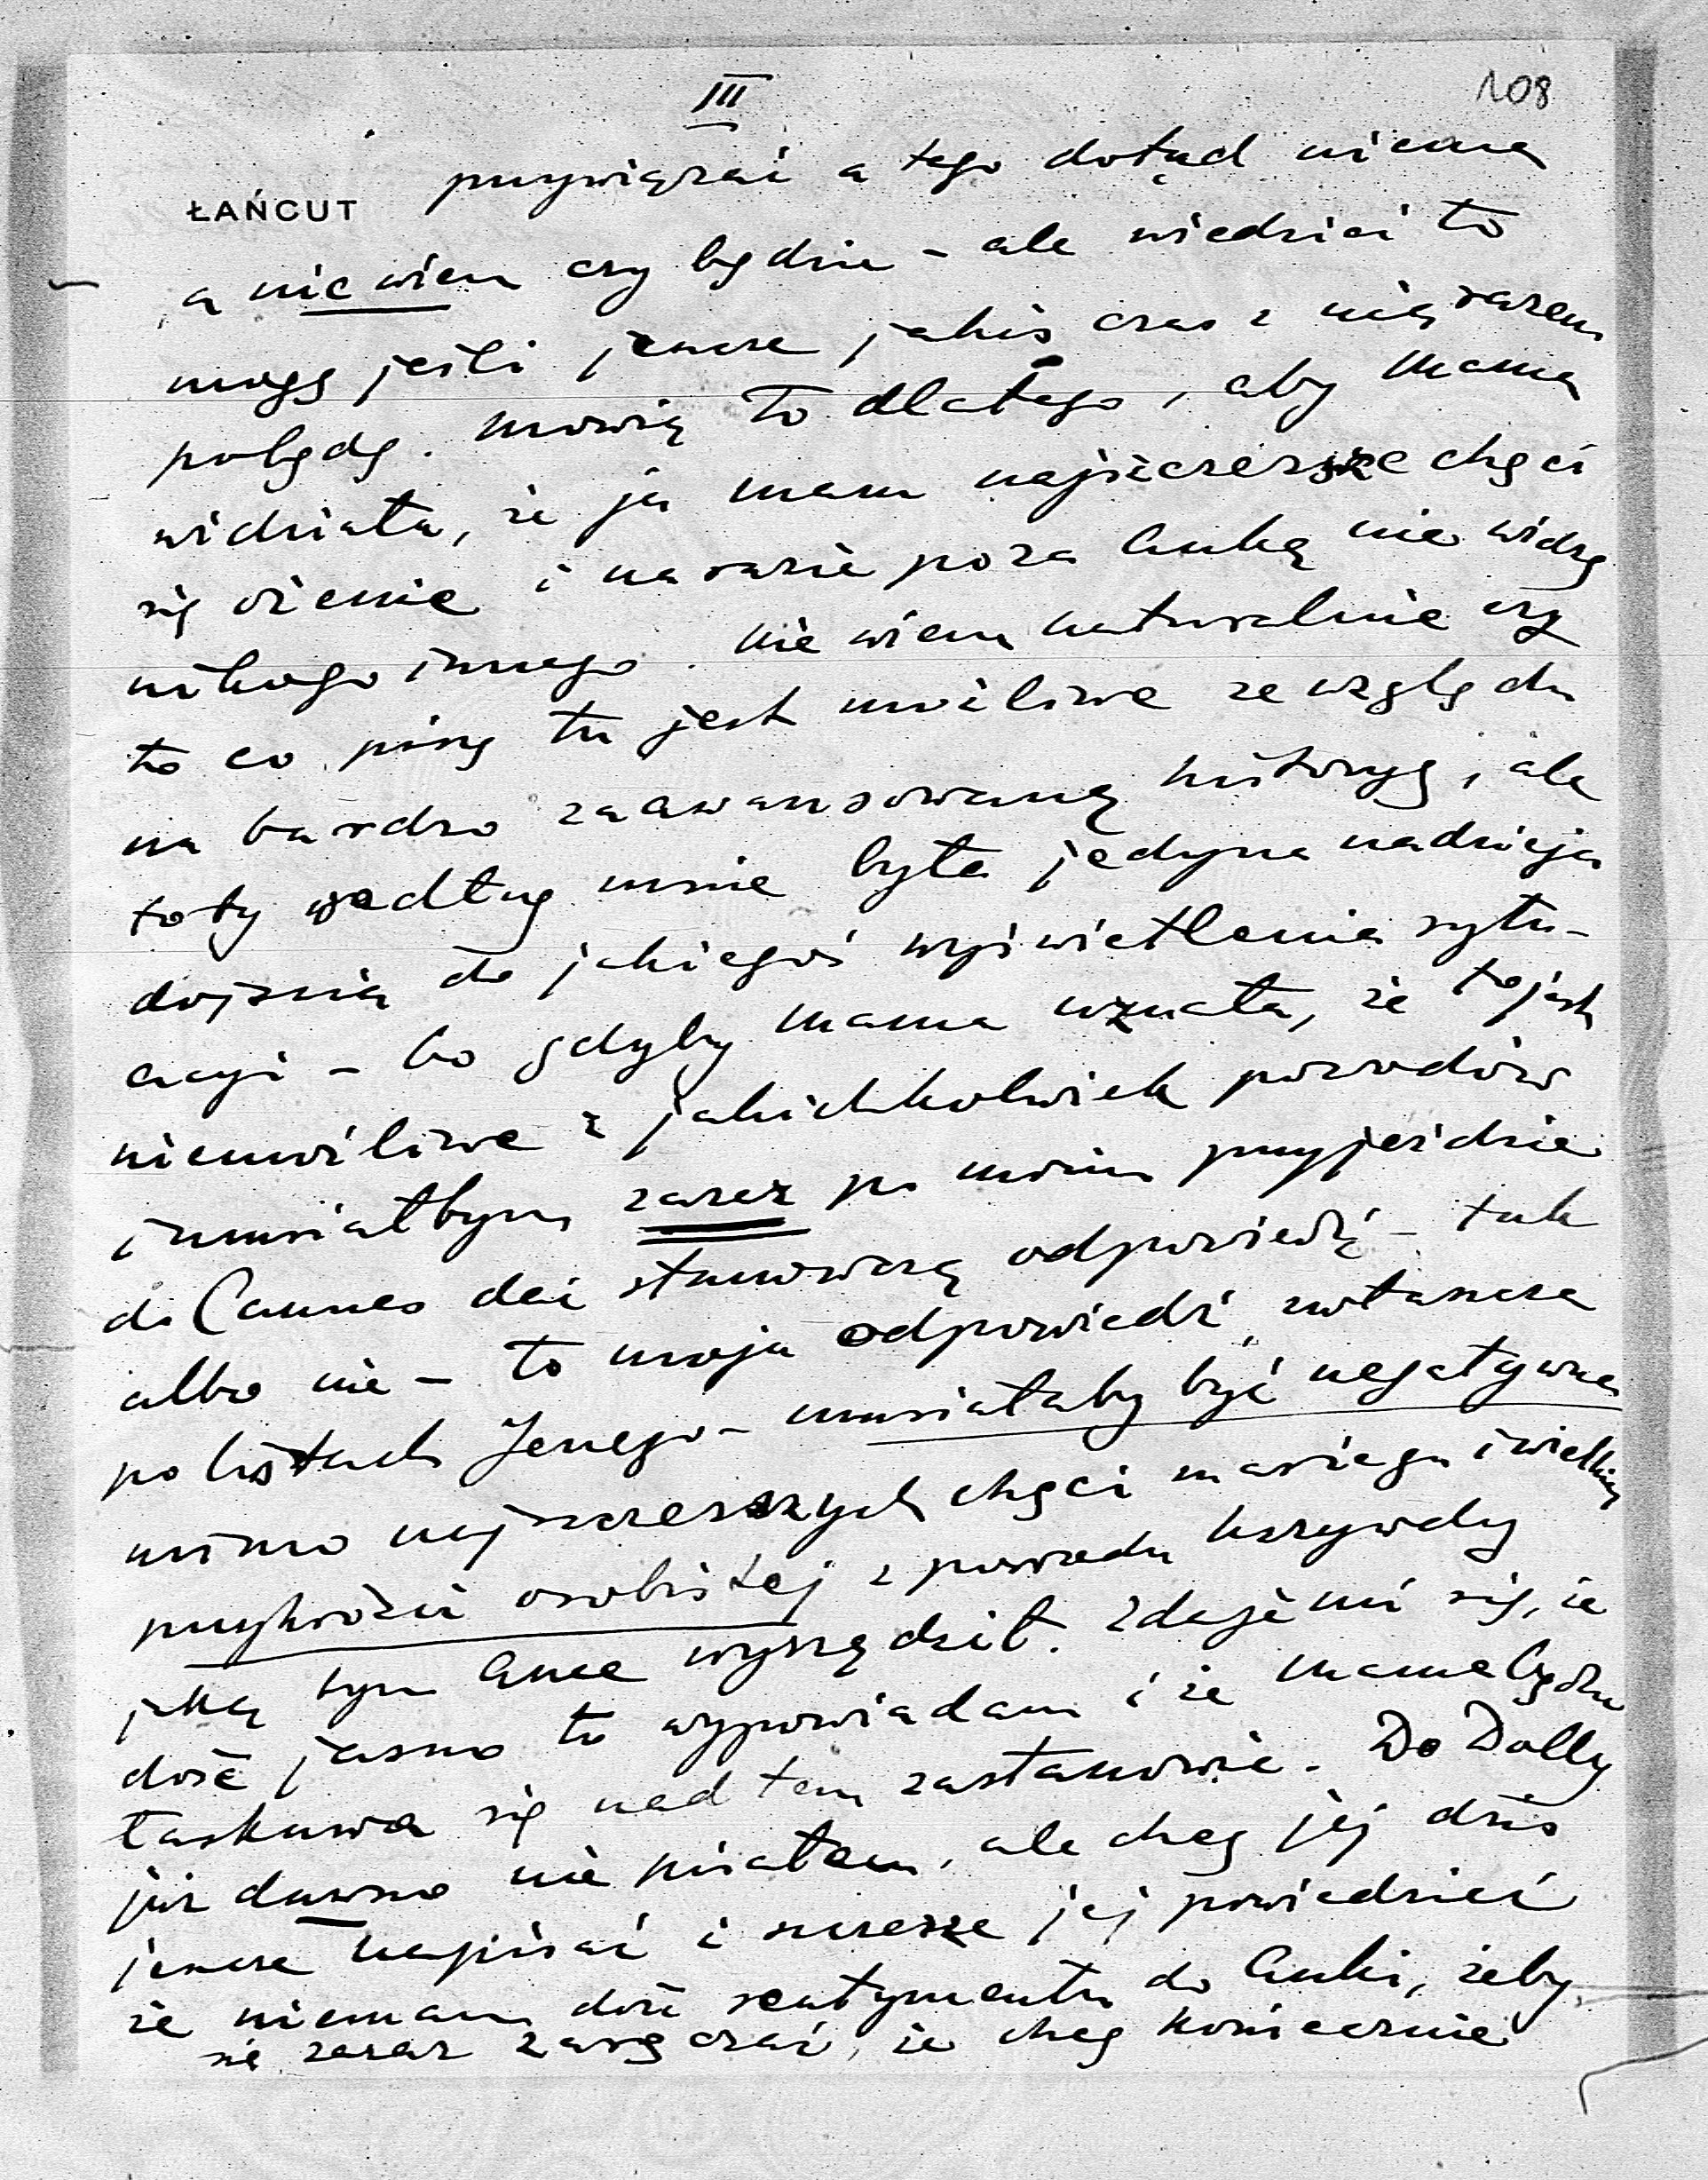 III
108
ŁAŃCUT
przywiązać a tego dotąd niema
a nie wiem czy będzie – ale wiedzieć to
mogę jeśli jeszcze jakiś czas z nią razem
pobędę. Mówię to dlatego, aby Mama
widziała, że ja mam najszczersze chęci
się ożenić i narazie poza Anką nie widzę
nikogo innego. Nie wiem naturalnie czy
to co piszę tu jest możliwe ze względu
na bardzo zaawansowaną historyę, ale
toby według mnie była jedyna nadzieja
dojścia do jakiegoś wyświetlenia sytu-
acyi – bo gdyby Mama uznała, że to jest
niemożliwe z jakichkolwiek powodów
i musiałbym zaraz po moim przyjeździe
do Cannes dać stanowczą odpowiedź – tak
albo nie – to moja odpowiedź, zwłaszcza
po listach Jerzego – musiałaby być negatywna
mimo najszczerszych chęci mariagu i wielkiej
przykrości osobistej z powodu krzywdy
jaką tym Ance wyrządził. Zdaje mi się, że
dość jasno to wypowiadam i że Mama będzie
łaskawa się nad tem zastanowić. Do Dolly
już dawno nie pisałem, ale chcę jej dziś
jeszcze napisać i szczerze jej powiedzieć
że niemam dość sentymentu do Anki, żeby
się zaraz zaręczać, że chcę koniecznie